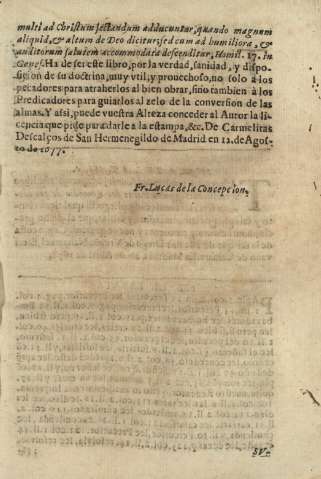 multi ad Christum sectandum adducuntur, quando magnum
aliquid, & altum de Deo dicitur; sed cum ad humiliora, &
auditorum salutem accommodatè descenditur, Homil. 17. In
Genes. Ha de ser este libro, por la verdad, sanidad, y dispo-
sicion de su doctrina, muy vtil, y prouechoso, no solo à los
pecadores para atraherlos al bien obrar, sino tambien à los
Predicadores para guiarlos al zelo de la conversion de las
almas. Y assi, puede vuestra Alteza conceder al Autor la li-
cencia que pide para darle à la estampa, &c. De Carmelitas
Descalços de San Hermenegildo de Madrid en 12. de Agos-
to de 1677.
Fr. Lucas de la Concepcion.
SV-